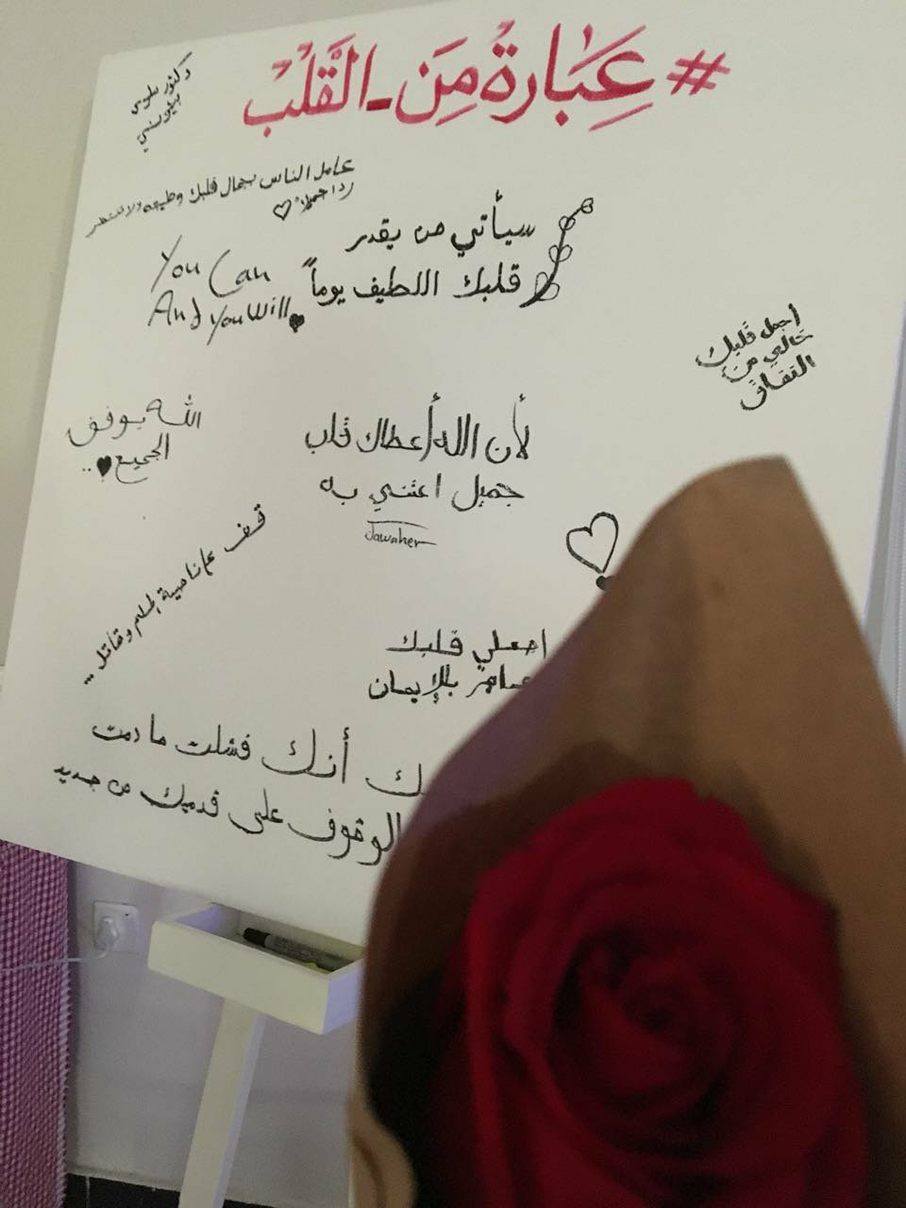 #عِبَارةٌ مِنَ_القَّلْب
دكتور طوس
عامل الناس بجمال قلبك وطيبه ولا تنتظر
رداً جميلاً
سيأتي من يقدر
قلبك اللطيف يوماً
You Can
And You Will
أجعل قلبك
خالي من
النفاق
الله يوفق
الجميع ..
لأن الله أعطاك قلب
جميل اعتني به
Jawaher
قف على ناصية الحلم وقاتل ..
اجعلي قلبك
عامر بالإيمان
أنك فشلت مادمت
الوقوف على قدميك من جديد